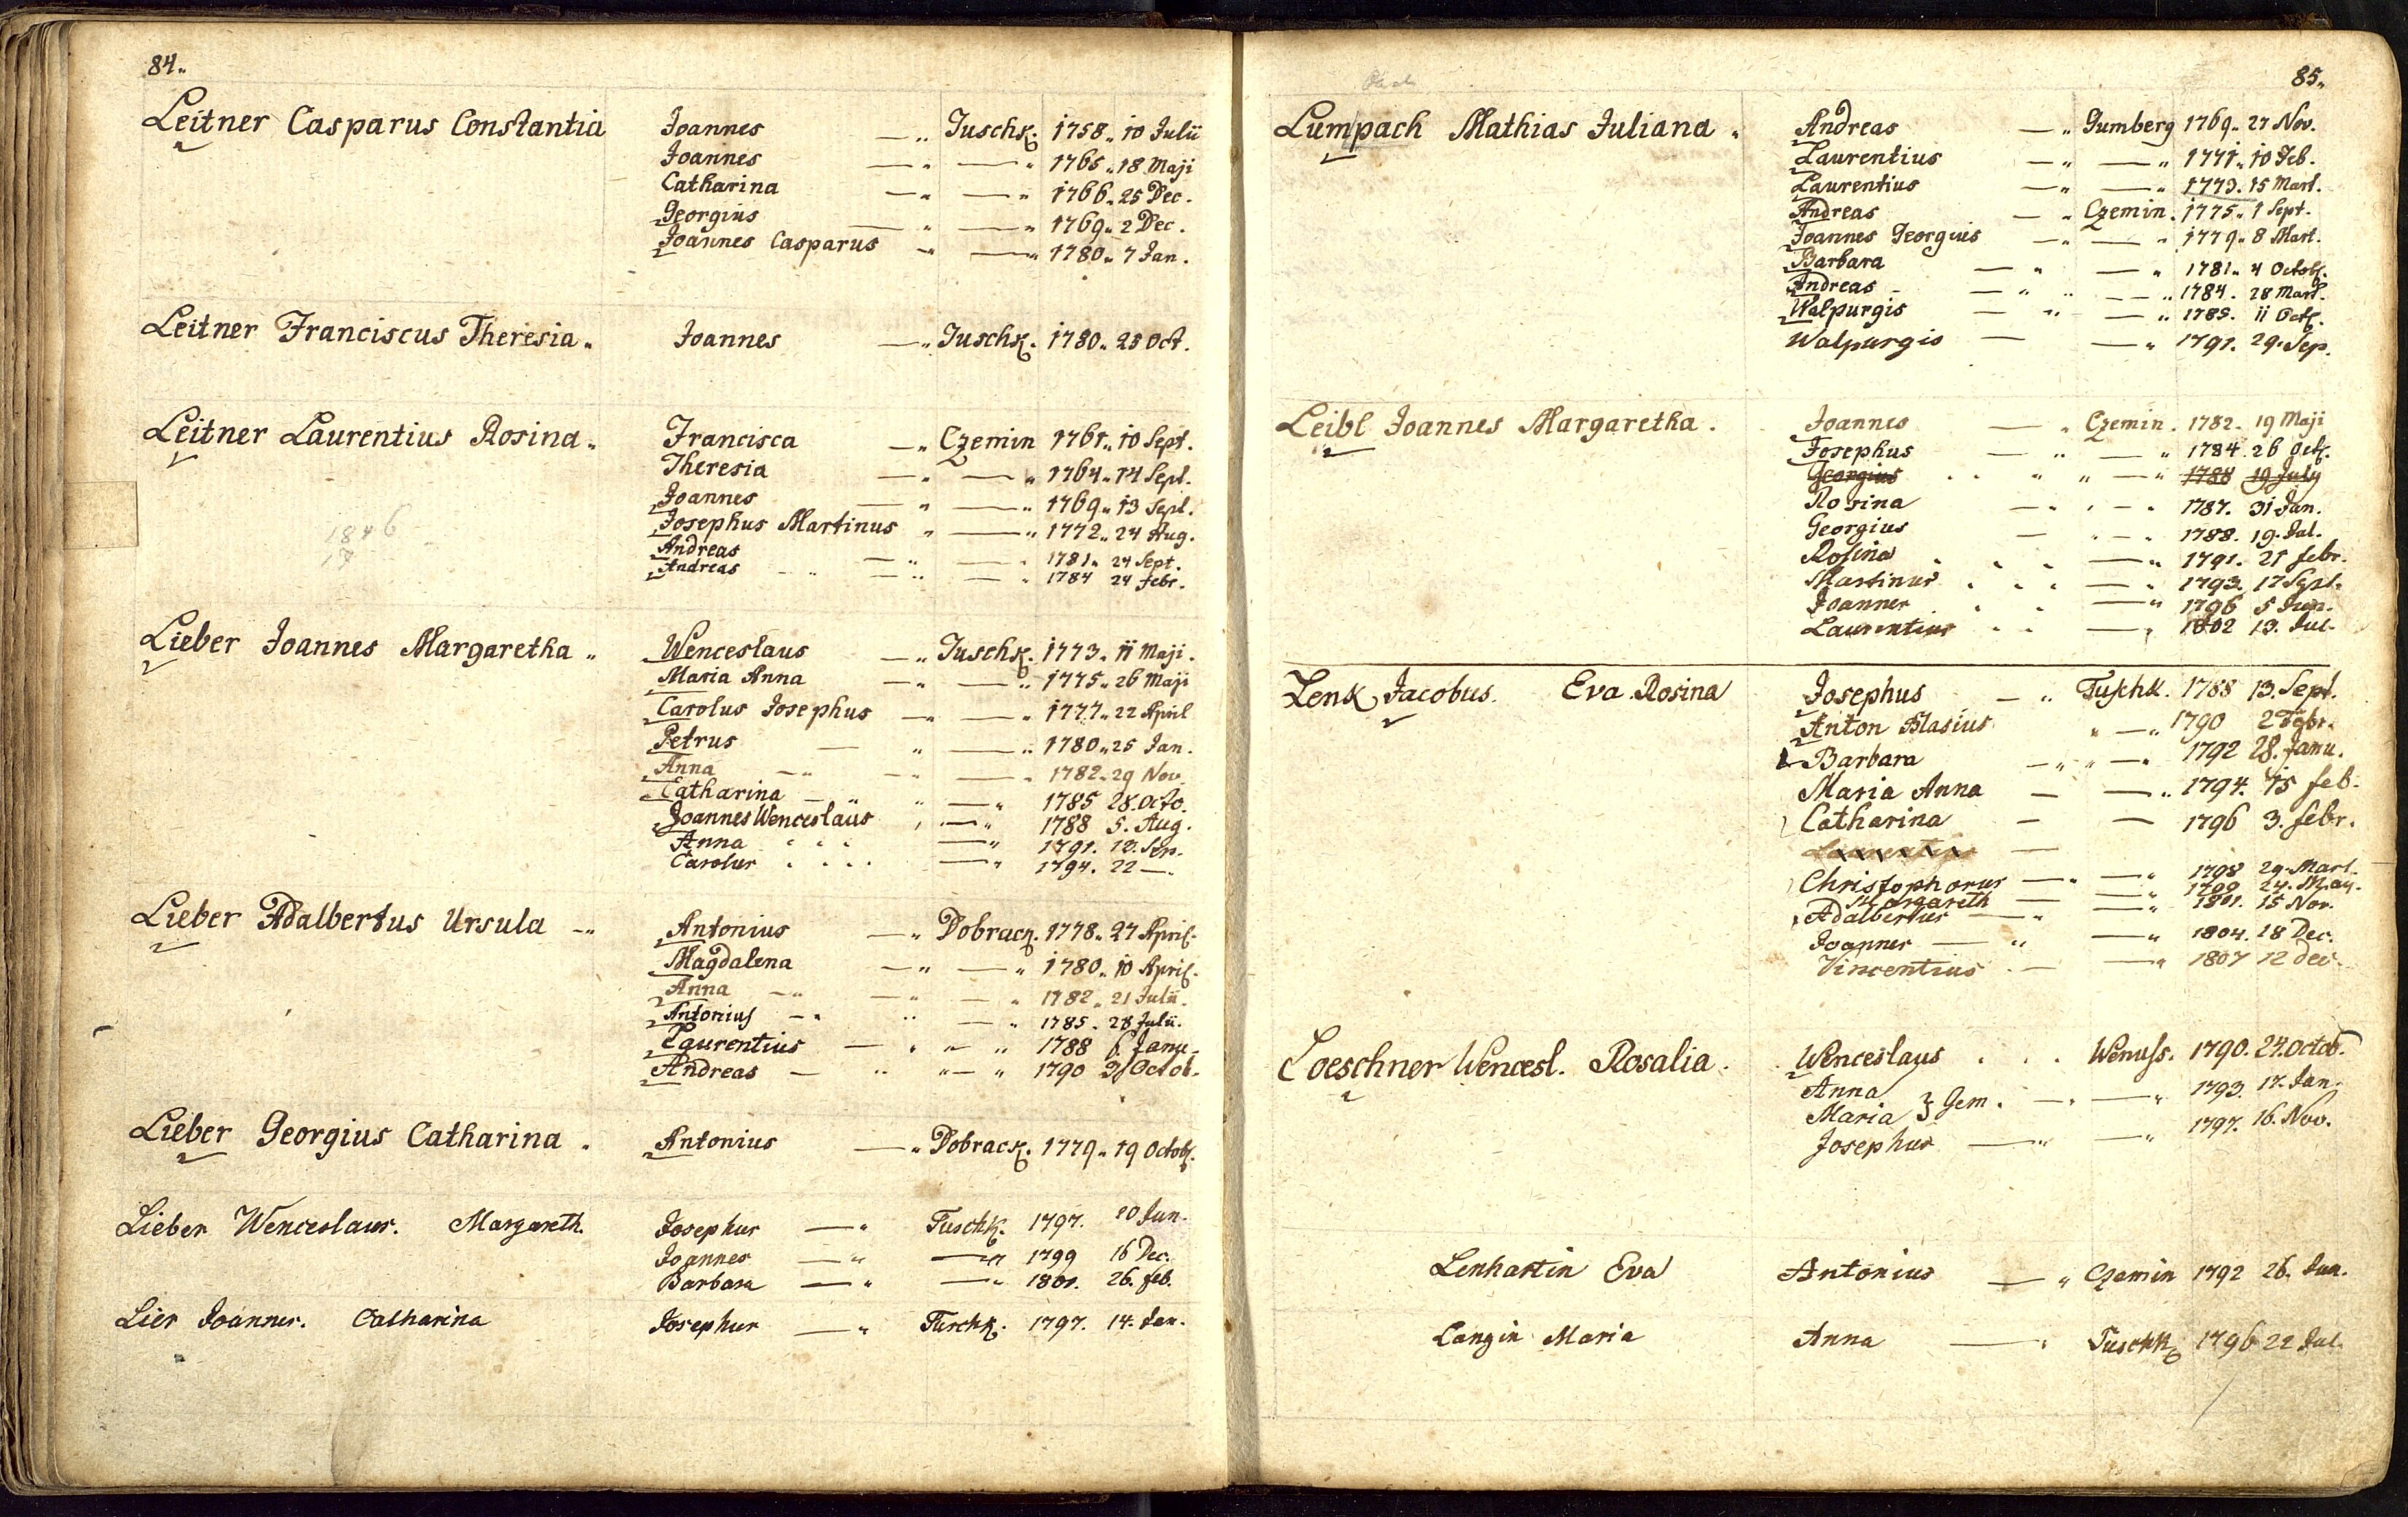 84.
Leitner Casparus Constantia Joannes — „ Tuschk. 1758 „ 10 Julii
Joannes — „ — „ 1765 „ 18 Maji
Catharina — „ — „ 1766 „ 25 Dec.
Georgius — „ — „ 1769 „ 2 Dec.
Joannes Casparus — „ — „ 1780 „ 7 Jan.
Leitner Franciscus Theresia „ Joannes — „ Tuschk. 1780 „ 23 Oct.
Leitner Laurentius Rosina „ Francisca — „ Czemin 1761 „ 10 Sept.
Theresia — „ — „ 1764 „ 14 Sept.
Joannes — „ — „ 1769 „ 13 Sept.
Josephus Martinus „ — „ 1772 „ 24 Aug.
1846
Andreas — „ — „ 1781 „ 24 Sept.
Andreas — „ — „ 1784 24 febr.
Lieber Joannes Margaretha „ Wenceslaus — „ Tuschk. 1773 „ 11 Maji.
Maria Anna — „ — „ 1775 „ 26 Maji
Carolus Josephus — „ — „ 1777 „ 22 April
Petrus — „ — „ 1780 „ 25 Jan.
Anna — „ — „ 1782 „ 29 Nov.
Catharina — „ „ — „ 1785 28. Octo.
Joannes Wenceslaus „ — „ 1788 5. Aug.
Anna — „ 1791. 12. Sep.
Carolus — „ 1794. 22 —.
Lieber Adalbertus Ursula — „ Antonius — „ Dobracz. 1778 „ 27 April.
Magdalena — „ — „ 1780 „ 10 April.
Anna — „ — „ — „ 1782 „ 21 Julii.
Antonius — „ „ — „ 1785 . 28 Julii.
Laurentius — „ „ — „ 1788 6 Janu.
Andreas — „ „ — „ 1790 31 Octob.
Lieber Georgius Catharina . Antonius — „ Dobracz. 1779 „ 19 Octob.
Lieber Wenceslaus. Margareth. Josephus — „ Tuschk. 1797. 20 Jun.
Joannes — „ — „ 1799 16 Dec.
Barbara — „ — „ 1801. 26. feb.
Lier Joannes. Catharina Josephus — „ Tuschk. 1797. 14. Jan.
85.
Lumpach Mathias Juliana . Andreas — „ Gumberg 1769 „ 27 Nov.
Laurentius — „ — „ 1771 „ 10 Feb.
Laurentius — „ — „ 1773. 15 Mart.
Andreas — „ Czemin. 1775 „ 1 Sept.
Joannes Georgius — „ — „ 1779 „ 8 Mart.
Barbara — „ — „ 1781 „ 4 Octob.
Andreas — „ — „ 1784 . 28 Mart.
Walpurgis — „ — „ 1785. 11 Oct.
Walpurgis — — „ 1791. 29. Sep.
Leibl Joannes Margaretha . Joannes — „ Czemin. 1782. 19 Maji
Josephus — „ — „ 1784 26 Oct.
Georgius „ „ — „ 1788 19 July
Rosina — „ — „ 1787. 31 Jan.
Georgius — „ — „ 1788. 19. Jul.
Rosina — „ 1791. 21 febr.
Martinus — „ 1793. 17 Sept.
Joannes — „ 1796 5 Jun.
Laurentius — „ 1802 13. Jul.
Lenk Jacobus. Eva Rosina Josephus — „ Tuschk. 1788 13. Sept.
Anton Blasius „ — „ 1790
Barbara — „ „ — „ 1792 28. Janu.
Maria Anna — — „ 1794. 15 feb.
Catharina — — 1796 3. febr.
Christophorus — „ — „ 1798 29. Mart.
Margareth — — „ 1799 24. May.
Adalbertus — „ — „ 1801. 15 Nov.
Joannes — „ — „ 1804. 18 Dec.
Vincentius — — „ 1807 12 Dec.
Loeschner Wencesl. Rosalia . Wenceslaus . . . Wenuss. 1790. 24. Octob.
Anna
Maria } Gem. — „ — „ 1793. 17. Jan.
Josephus — „ — „ 1797. 16. Nov.
Lenhartin Eva Antonius — „ Czemin 1792 26. Jan.
Langin Maria Anna — „ Tuschk. 1796 22 Jul.